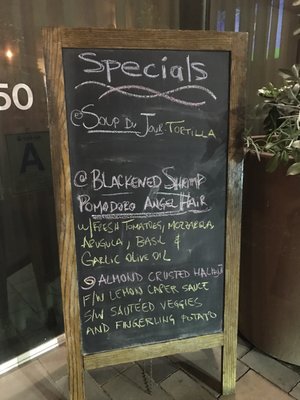 50
A
Specials
@ Soup Du Jour: Tortilla
@ Blackened Shrimp
Pomodoro Angel Hair
w/ Fresh Tomatoes, Mozzarella
Arugula, Basil &
Garlic Olive Oil
@ Almond Crusted Halibut
F/W Lemon Caper Sauce
S/W Sauteed Veggies
and Fingerling Potato